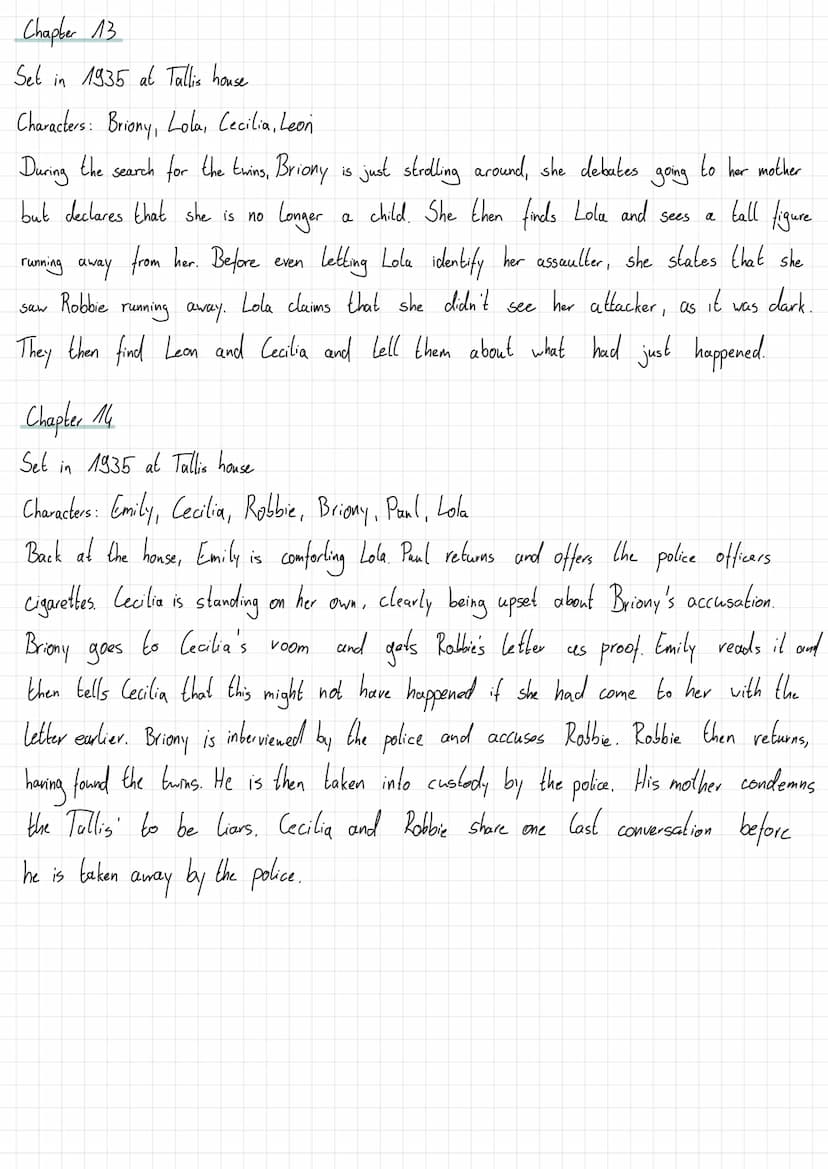 Chapter 13
Set in 1935 at Tallis house
Characters: Briony, Lola, Cecilia, Leon
During the search for the twins, Briony is just strolling around, she debates going to her mother
but declares that she is no longer a child. She then finds Lola and sees a tall figure
running away from her. Before even letting Lola identify her assaulter, she states that she
saw Robbie running away. Lola claims that she didn't see her attacker, as it was dark.
They then find Leon and Cecilia and tell them about what had just happened.
Chapter 14
Set in 1935 at Tallis house
Characters: Emily, Cecilia, Robbie, Briony, Paul, Lola
Back at the house, Emily is comforting Lola. Paul returns and offers the police officers
cigarettes. Cecilia is standing on her own, clearly being upset about Briony's accusation.
Briony goes to Cecilia's room and gets Robbie's letter as proof. Emily reads it and
then tells Cecilia that this might not have happened if she had come to her with the
letter earlier. Briony is interviewed by the police and accuses Robbie. Robbie then returns,
having found the twins. He is then taken into custody by the police. His mother condemns
the Tallis' to be liars. Cecilia and Robbie share one last conversation before
he is taken away by the police.